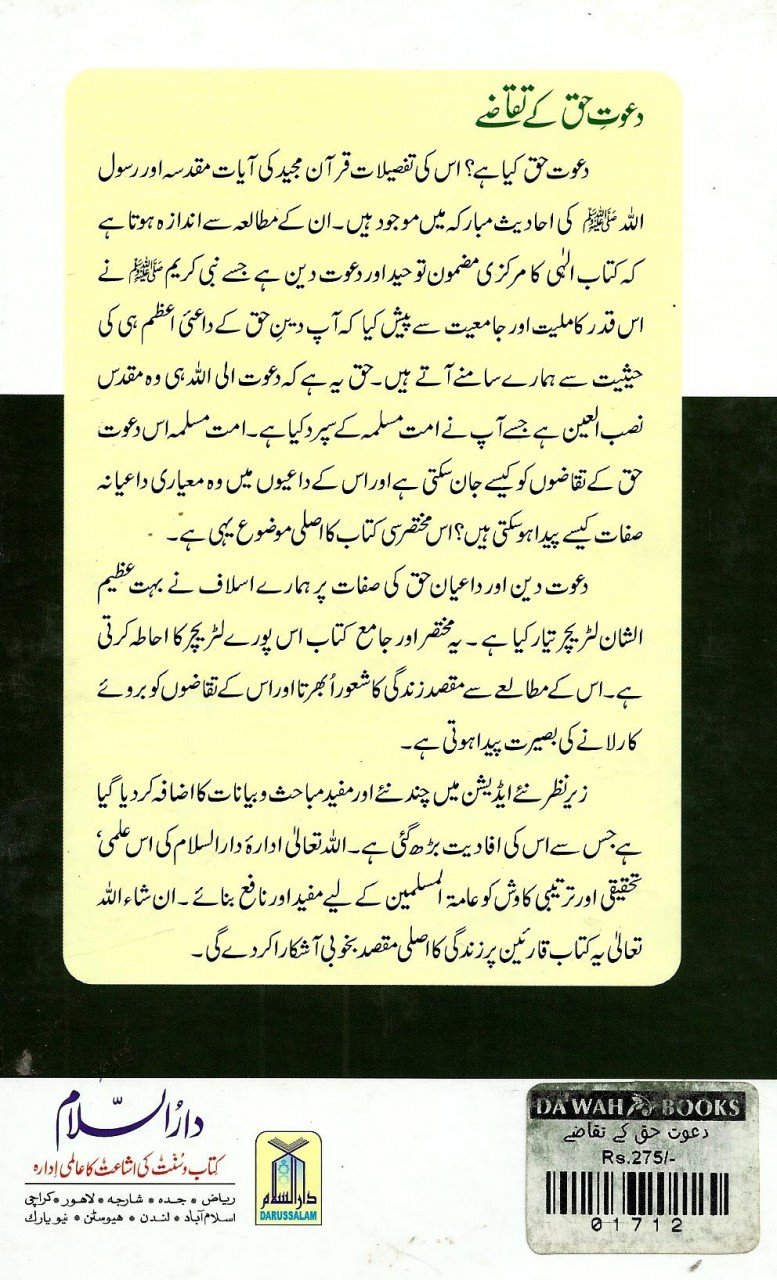 دعوتِ حق کے تقاضے
دعوت حق کیا ہے؟ اس کی تفصیلات قرآن مجید کی آیات مقدسہ اور رسول
اللہ ﷺ کی احادیث مبارکہ میں موجود ہیں۔ ان کے مطالعہ سے اندازہ ہوتا ہے
کہ کتاب الٰہی کا مرکزی مضمون توحید اور دعوت دین ہے جسے نبی کریم ﷺ نے
اس قدر کاملیت اور جامعیت سے پیش کیا کہ آپ دینِ حق کے داعئی اعظم ہی کی
حیثیت سے ہمارے سامنے آتے ہیں۔ حق یہ ہے کہ دعوت الی اللہ ہی وہ مقدس
نصب العین ہے جسے آپ نے امت مسلمہ کے سپرد کیا ہے۔ امت مسلمہ اس دعوت
حق کے تقاضوں کو کیسے جان سکتی ہے اور اس کے داعیوں میں وہ معیاری داعیانہ
صفات کیسے پیدا ہوسکتی ہیں؟ اس مختصر سی کتاب کا اصلی موضوع یہی ہے۔
دعوت دین اور داعیان حق کی صفات پر ہمارے اسلاف نے بہت عظیم
الشان لٹریچر تیار کیا ہے۔ یہ مختصر اور جامع کتاب اس پورے لٹریچر کا احاطہ کرتی
ہے۔ اس کے مطالعے سے مقصد زندگی کا شعور اُبھرتا اور اس کے تقاضوں کو بروئے
کار لانے کی بصیرت پیدا ہوتی ہے۔
زیر نظر نئے ایڈیشن میں چند نئے اور مفید مباحث و بیانات کا اضافہ کر دیا گیا
ہے جس سے اس کی افادیت بڑھ گئی ہے۔ اللہ تعالیٰ ادارۂ دارالسلام کی اس علمی‘
تحقیقی اور ترتیبی کاوش کو عامۃ المسلمین کے لیے مفید اور نافع بنائے۔ ان شاء اللہ
تعالیٰ یہ کتاب قارئین پر زندگی کا اصلی مقصد بخوبی آشکارا کر دے گی۔
دارُالسّلام
کتاب و سُنّت کی اشاعت کا عالمی ادارہ
ریاض • جدہ • شارجہ • لاہور • کراچی
اسلام آباد • لندن • ہیوسٹن • نیو یارک
دارالسلام
DARUSSALAM
DA'WAH BOOKS
دعوت حق کے تقاضے
Rs.275/-
01712